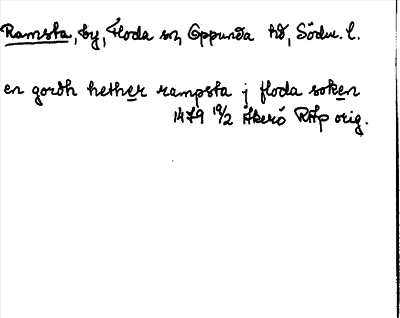 Ramsta, by, Floda sn, Oppunda hd, Södm. l.
en gordh hether rampsta j floda soken
1479 19/2 Åkerö RAp orig.